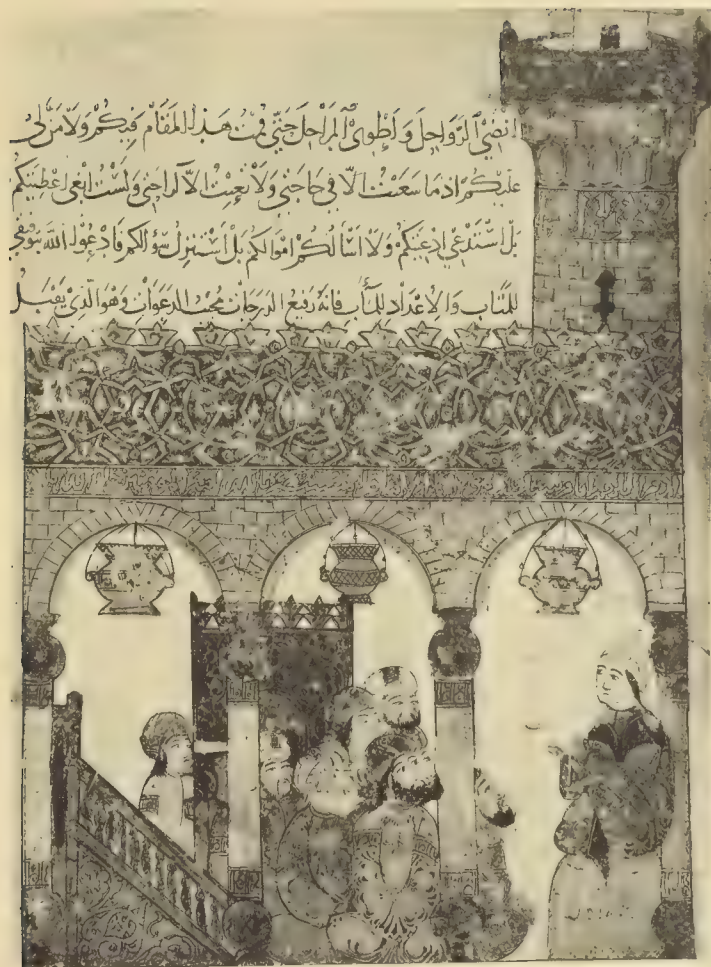 انضي الرواحل واطوي المراحل حتى قمت هذا المقام فيكم ولا من لي
عليكم اذ ما سعيت الا في حاجتي ولا تعبت الا لراحتي ولست ابغي اعطيتكم
بل استدعي ادعيتكم ولا اسألكم اموالكم بل استنزل سؤالكم فادعوا الله بتوفيقي
للمتاب والاعداد للمآب فانه رفيع الدرجات مجيب الدعوات وهو الذي يقبل